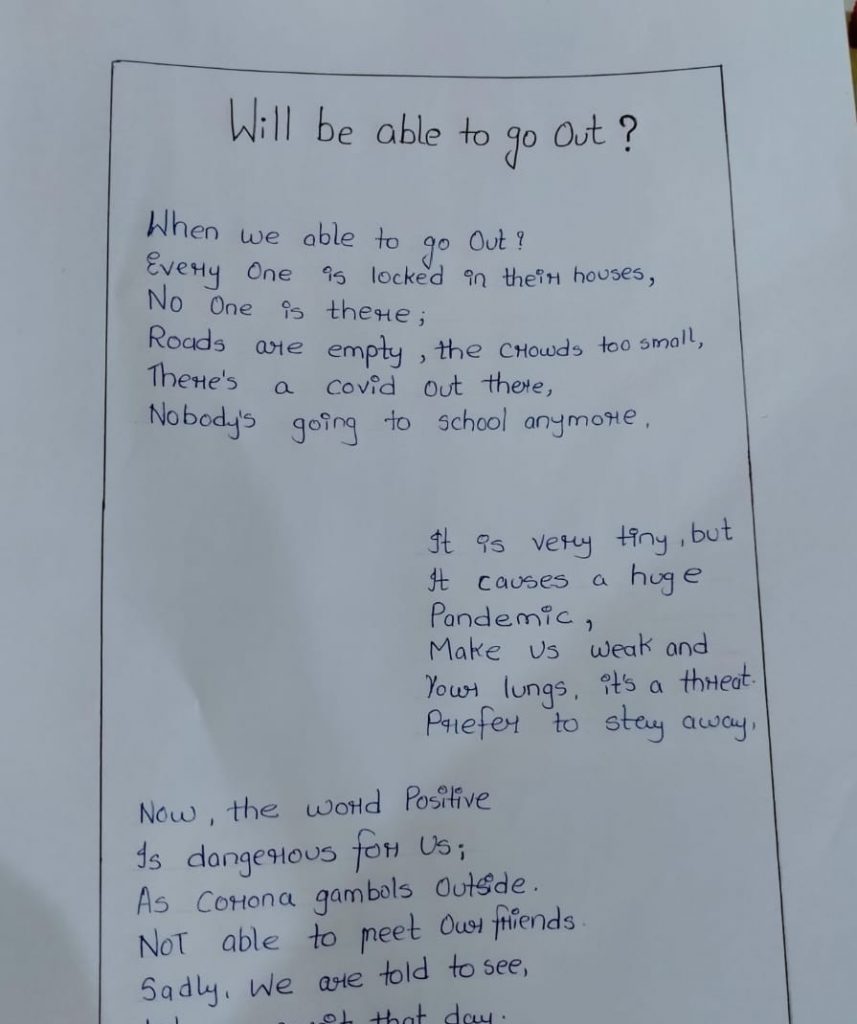 Will be able to go Out ?
When we able to go Out ?
Every One is locked in their houses,
No One is there ;
Roads are empty , the crowds too small,
There's a covid out there,
Nobody's going to school anymore .
It is very tiny , but
It causes a huge
Pandemic ,
Make us weak and
Your lungs, it's a threat.
Prefer to stay away,
Now , the word Positive
Is dangerous for Us ;
As Corona gambols Outside .
NOT able to meet Our friends .
Sadly, We are told to see,
that day .